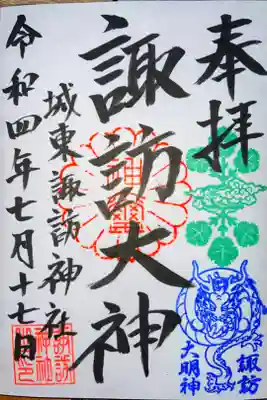 奉拝
諏訪大神
城東諏訪神社
令和四年七月十七日
諏訪
大明神